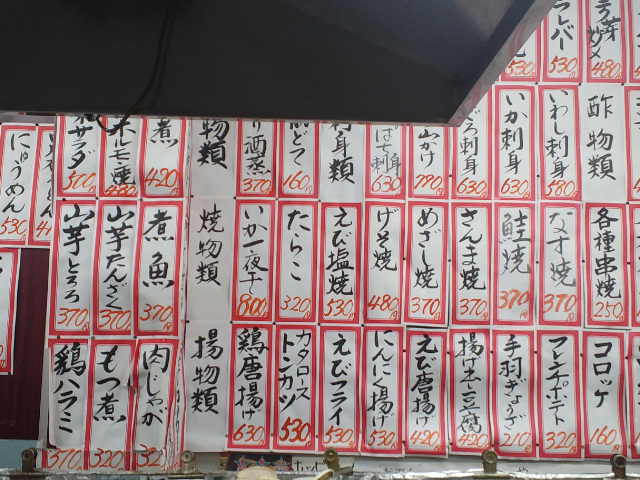 レバー 530
炒メ 480
530
酢物類
いわし刺身 580
いか刺身 630
刺身 630
山かけ 790
刺身 630
刺身類
160
酒蒸 370
物類
煮 420
ホルモン 480
サラダ 500
にゅうめん 530
各種串焼 250
なす焼 370
鮭焼 370
さんま焼 370
めざし焼 370
げそ焼 480
えび塩焼 530
たらこ 320
いか一夜干 800
焼物類
煮魚 370
山芋たんざく 370
山芋とろろ 370
コロッケ 160
フレンチポテト 320
手羽ぎょうざ 210
揚げ出し豆腐 420
えび唐揚げ 420
にんにく揚げ 530
えびフライ 530
カタロース トンカツ 530
鶏唐揚げ 630
揚物類
肉じゃが
もつ煮 320
鶏ハラミ 370